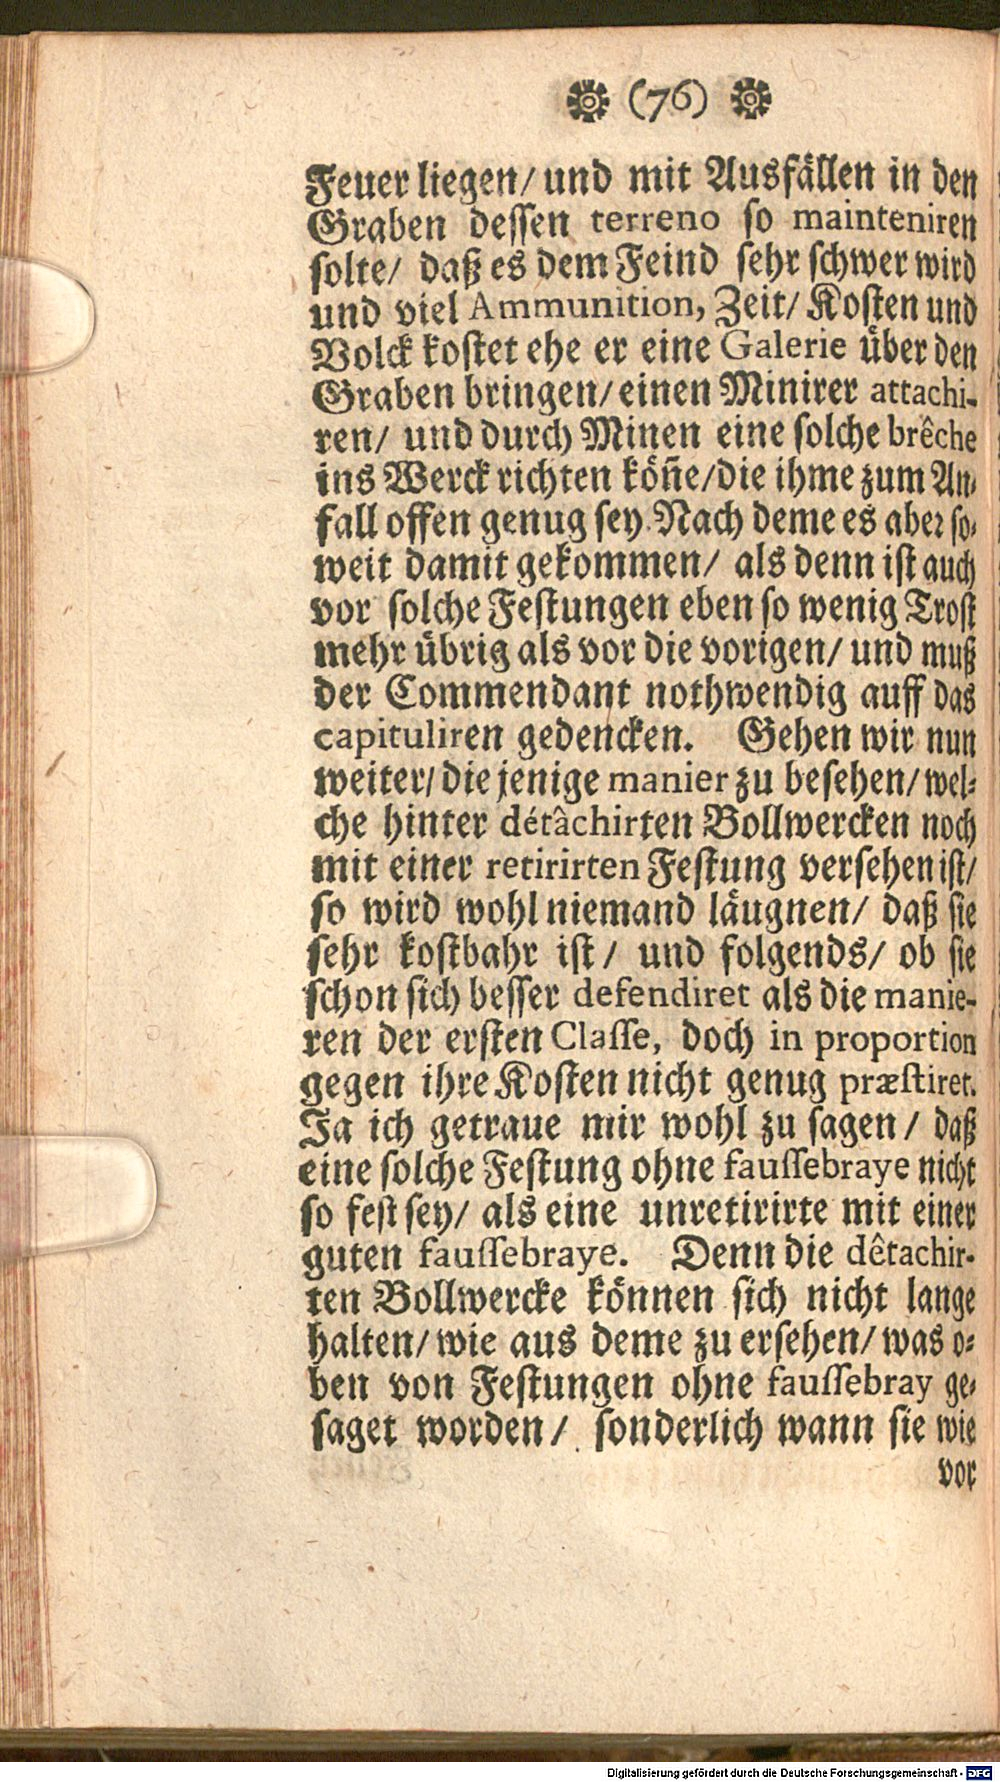 (76)
Feuer liegen/ und mit Ausfällen in den
Graben dessen terreno so mainteniren
solte/ daß es dem Feind sehr schwer wird
und viel Ammunition, Zeit/ Kosten und
Volck kostet ehe er eine Galerie über den
Graben bringen/ einen Minirer attachi-
ren/ und durch Minen eine solche brêche
ins Werck richten köñe/ die ihme zum An-
fall offen genug sey. Nach deme es aber so-
weit damit gekommen/ als denn ist auch
vor solche Festungen eben so wenig Trost
mehr übrig als vor die vorigen/ und muß
der Commendant nothwendig auff das
capituliren gedencken. Gehen wir nun
weiter/ die jenige manier zu besehen/ wel-
che hinter détâchirten Bollwercken noch
mit einer retirirten Festung versehen ist/
so wird wohl niemand läugnen/ daß sie
sehr kostbahr ist/ und folgends/ ob sie
schon sich besser defendiret als die manie-
ren der ersten Classe, doch in proportion
gegen ihre Kosten nicht genug præstiret.
Ja ich getraue mir wohl zu sagen/ daß
eine solche Festung ohne faussebraye nicht
so fest sey/ als eine unretirirte mit einer
guten faussebraye. Denn die dêtachir-
ten Bollwercke können sich nicht lange
halten/ wie aus deme zu ersehen/ was o-
ben von Festungen ohne faussebray ge-
saget worden/ sonderlich wann sie wie
vor
Digitalisierung gefördert durch die Deutsche Forschungsgemeinschaft - DFG